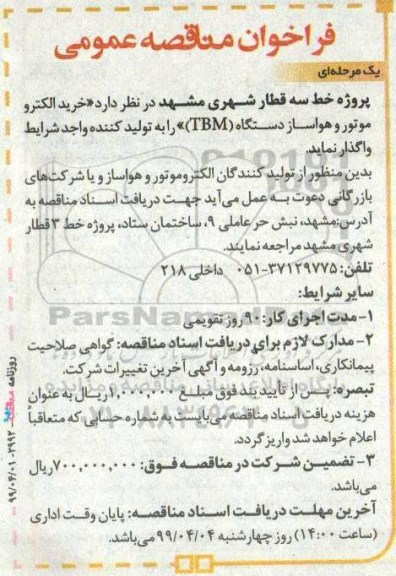 فراخوان مناقصه عمومی
یک مرحله‌ای
پروژه خط سه قطار شهری مشهد در نظر دارد «خرید الکترو
موتور و هواساز دستگاه (TBM)» را به تولید کننده واجد شرایط
واگذار نماید.
بدین منظور از تولید کنندگان الکتروموتور و هواساز و یا شرکت‌های
بازرگانی دعوت به عمل می‌آید جهت دریافت اسناد مناقصه به
آدرس: مشهد، نبش حر عاملی ۹، ساختمان ستاد، پروژه خط ۳ قطار
شهری مشهد مراجعه نمایند.
تلفن: ۳۷۱۲۹۷۷۵-۰۵۱ داخلی ۲۱۸
سایر شرایط:
۱- مدت اجرای کار: ۹۰ روز تقویمی
۲- مدارک لازم برای دریافت اسناد مناقصه: گواهی صلاحیت
پیمانکاری، اساسنامه، رزومه و آگهی آخرین تغییرات شرکت.
تبصره: پس از تایید بند فوق مبلغ ۱,۰۰۰,۰۰۰ ریال به عنوان
هزینه دریافت اسناد مناقصه می‌بایست به شماره حسابی که متعاقباً
اعلام خواهد شد واریز گردد.
۳- تضمین شرکت در مناقصه فوق: ۷۰۰,۰۰۰,۰۰۰ ریال
می‌باشد.
آخرین مهلت دریافت اسناد مناقصه: پایان وقت اداری
(ساعت ۱۴:۰۰) روز چهارشنبه ۹۹/۰۴/۰۴ می‌باشد.
روزنامه ۲۹۹۲-۹۹/۰۴/۰۱
ParsNamadData